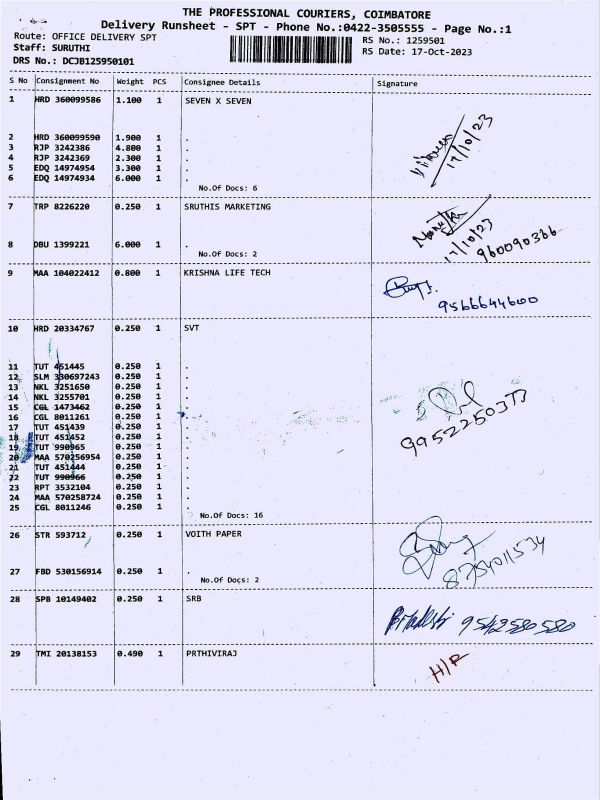 THE PROFESSIONAL COURIERS, COIMBATORE
Delivery Runsheet - SPT - Phone No.:0422-3505555 - Page No.:1
Route: OFFICE DELIVERY SPT
RS No.: 1259501
Staff: SURUTHI
RS Date: 17-Oct-2023
DRS No.: DCJB125950101
S No Consignment No Weight PCS Consignee Details Signature
1 HRD 360099586 1.100 1 SEVEN X SEVEN
2 HRD 360099590 1.900 1 .
3 RJP 3242386 4.800 1 .
4 RJP 3242369 2.300 1 .
5 EDQ 14974954 3.300 1 .
6 EDQ 14974934 6.000 1 .
17/10/23
No.Of Docs: 6
7 TRP 8226220 0.250 1 SRUTHIS MARKETING
8 DBU 1399221 6.000 1 .
17/10/23
No.Of Docs: 2
960090366
9 MAA 104022412 0.800 1 KRISHNA LIFE TECH
9566644600
10 HRD 20334767 0.250 1 SVT
11 TUT 451445 0.250 1 .
12 SLM 330697243 0.250 1 .
13 NKL 3251650 0.250 1 .
14 NKL 3255701 0.250 1 .
15 CGL 1473462 0.250 1 .
16 CGL 8011261 0.250 1 .
17 TUT 451439 0.250 1 .
18 TUT 451452 0.250 1 .
19 TUT 990965 0.250 1 .
20 MAA 570256954 0.250 1 .
21 TUT 451444 0.250 1 .
22 TUT 990966 0.250 1 .
23 RPT 3532104 0.250 1 .
24 MAA 570258724 0.250 1 .
25 CGL 8011246 0.250 1 .
No.Of Docs: 16
26 STR 593712 0.250 1 VOITH PAPER
27 FBD 530156914 0.250 1 .
No.Of Docs: 2
28 SPB 10149402 0.250 1 SRB
29 TMI 20138153 0.490 1 PRTHIVIRAJ
H/R